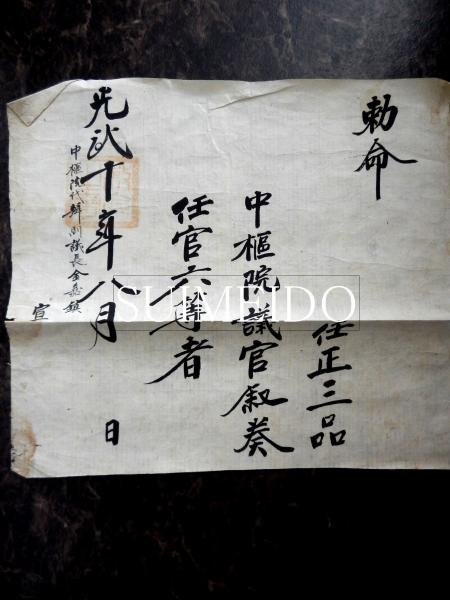 勅命
任正三品
中樞院議官叙奏
任官六等者
光武十年八月 日
中樞院代辦副議長金嘉鎮
宣
SUIMEIDO